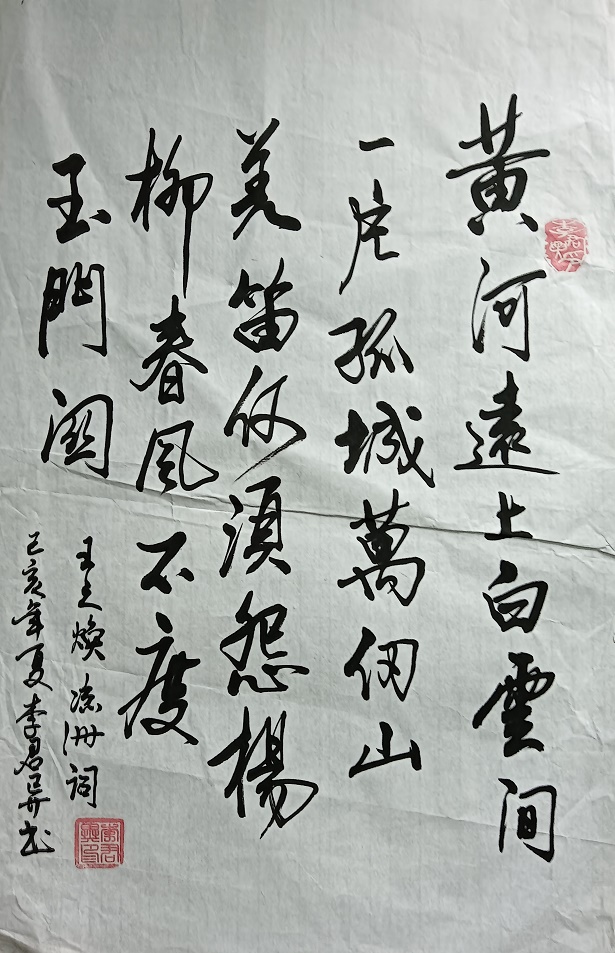 黄河遠上白雲间
一片孤城萬仞山
羌笛何須怨楊
柳春風不度
玉門關
王之焕凉州词
己亥年夏李君異书